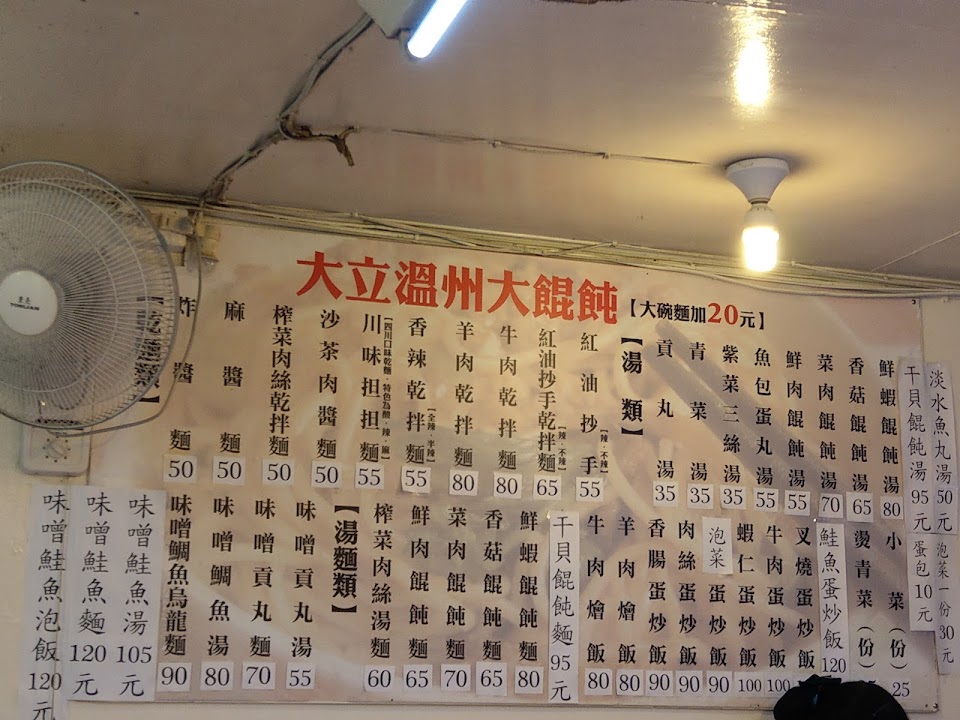 大立溫州大餛飩
【大碗麵加20元】
炸醬麵 50
麻醬麵 50
榨菜肉絲乾拌麵 50
沙茶肉醬麵 50
川味担担麵 55
【四川口味乾麵，特色為酸、辣、麻】
香辣乾拌麵 55
【全辣、半辣】
羊肉乾拌麵 80
牛肉乾拌麵 80
紅油抄手乾拌麵 65
【辣、不辣】
紅油抄手 55
【辣、不辣】
【湯類】
貢丸湯 35
青菜湯 35
紫菜三絲湯 35
魚包蛋丸湯 55
鮮肉餛飩湯 55
菜肉餛飩湯 70
香菇餛飩湯 65
鮮蝦餛飩湯 80
干貝餛飩湯 95元
淡水魚丸湯 50元
味噌鮭魚泡飯 120元
味噌鮭魚麵 120元
味噌鮭魚湯 105元
味噌鯛魚烏龍麵 90
味噌鯛魚湯 80
味噌貢丸麵 70
味噌貢丸湯 55
【湯麵類】
榨菜肉絲湯麵 60
鮮肉餛飩麵 65
菜肉餛飩麵 70
香菇餛飩麵 65
鮮蝦餛飩麵 80
干貝餛飩麵 95元
牛肉燴飯 80
羊肉燴飯 80
香腸蛋炒飯 90
肉絲蛋炒飯 90
泡菜蛋炒飯 90
蝦仁蛋炒飯 100
牛肉蛋炒飯 100
叉燒蛋炒飯
鮭魚蛋炒飯 120
燙青菜（份）
小菜（份） 25
蛋包10元
泡菜一份30元